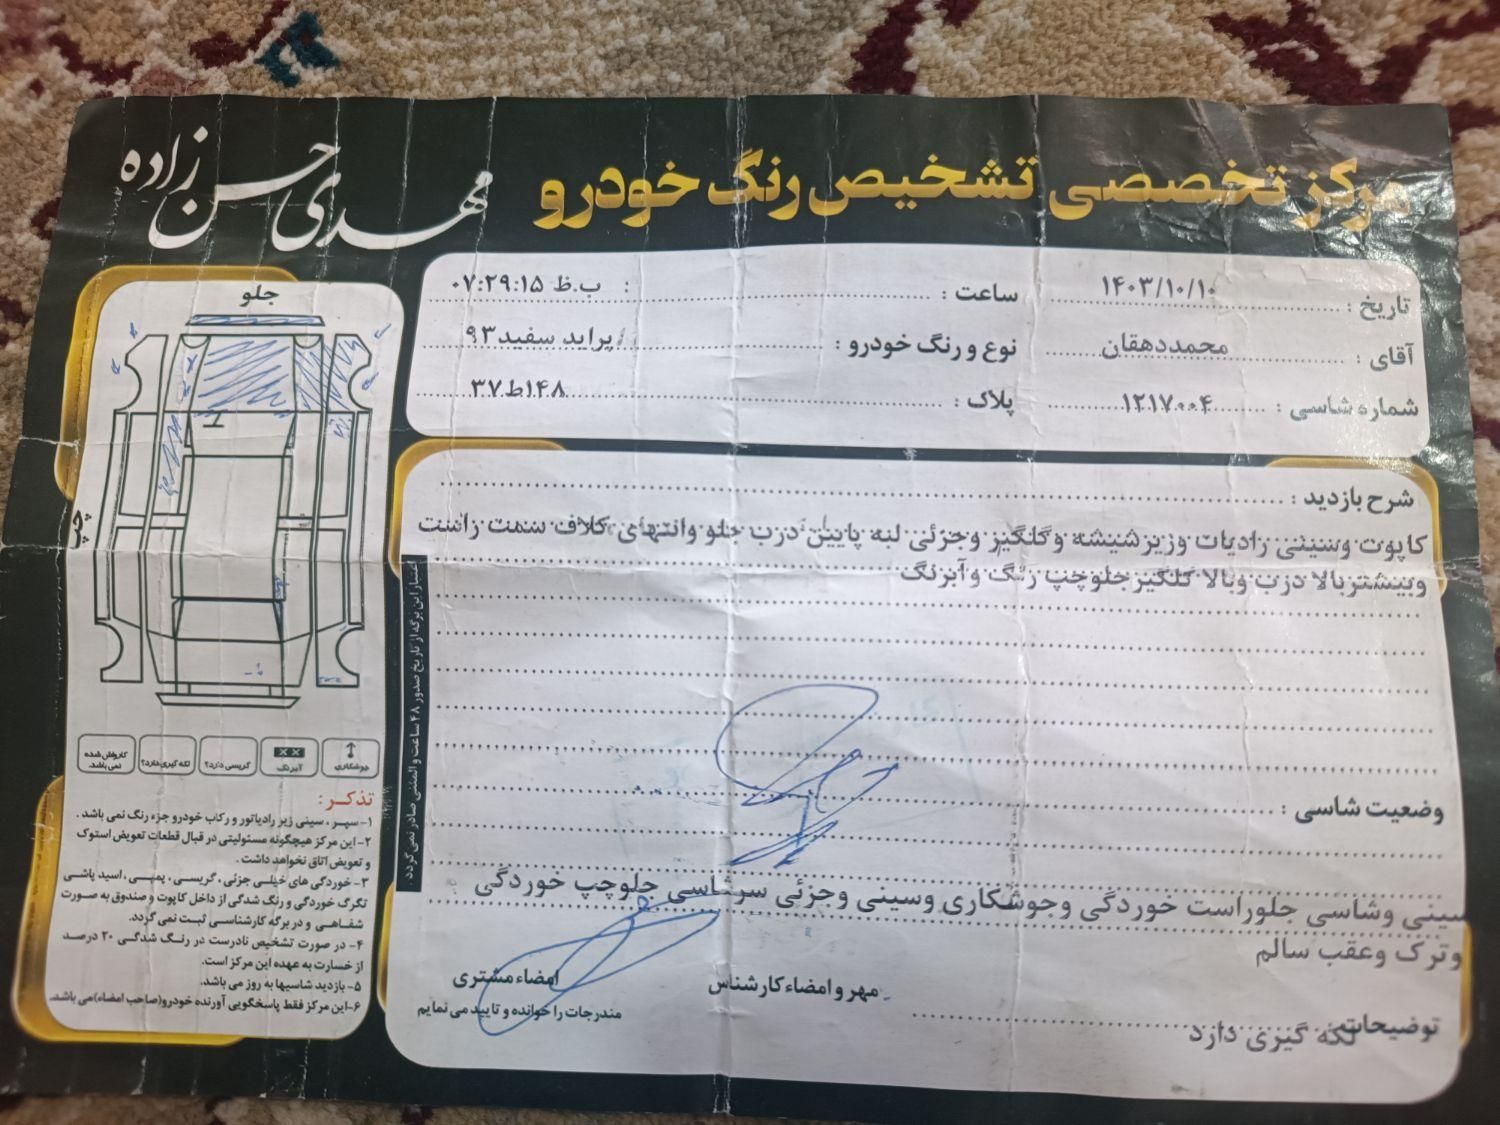 مرکز تخصصی تشخیص رنگ خودرو
مهدی حسن زاده
تاریخ : ۱۴۰۳/۱۰/۱۰
ساعت : ۰۷:۲۹:۱۵ ب.ظ :
آقای : محمددهقان
نوع و رنگ خودرو : پراید سفید۹۳
شماره شاسی : ۱۲۱۷۰۰۴
پلاک : ۱۴۸ط۳۷
شرح بازدید :
کاپوت وسینی رادیات وزیرشیشه وگلگیز وجزئی لبه پایین درب جلو وانتهای کلاف سمت راست
وبیشتربالا درب وبالا گلگیزجلوچپ رنگ وآبرنگ
وضعیت شاسی :
سینی وشاسی جلوراست خوردگی وجوشکاری وسینی وجزئی سرشاسی جلوچپ خوردگی
وترک وعقب سالم
مهر و امضاء کارشناس
امضاء مشتری
مندرجات را خوانده و تایید می نمایم
توضیحات
لکه گیری دارد
اعتبار این برگه از تاریخ صدور ۴۸ ساعت و المثنی صادر نمی گردد
جلو
چپ
جوشکاری
آبرنگ
گریسی دارد؟
لکه گیری دارد؟
کارواش شده نمی باشد.
تذکر :
۱- سپر ، سینی زیر رادیاتور و رکاب خودرو جزء رنگ نمی باشد .
۲- این مرکز هیچگونه مسئولیتی در قبال قطعات تعویض استوک
و تعویض اتاق نخواهد داشت .
۳- خوردگی های خیلی جزئی ، گریسی ، پمپی ، اسید پاشی
تگرگ خوردگی و رنگ شدگی از داخل کاپوت و صندوق به صورت
شفاهی و در برگه کارشناسی ثبت نمی گردد.
۴- در صورت تشخیص نادرست در رنگ شدگی ۲۰ درصد
از خسارت به عهده این مرکز است.
۵- بازدید شاسیها به روز می باشد.
۶- این مرکز فقط پاسخگویی آورنده خودرو(صاحب امضاء)می باشد.